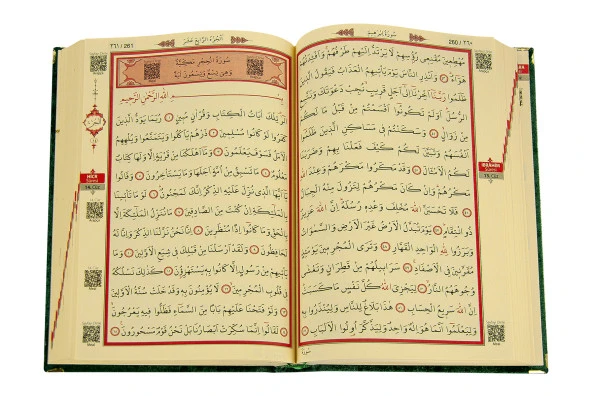 ٢٦٠ / 260
سُورَةُ اِبْرٰهِيمَ
مُهْطِعِينَ مُقْنِعِي رُؤُسِهِمْ لَا يَرْتَدُّ اِلَيْهِمْ طَرْفُهُمْ وَاَفْئِدَتُهُمْ
هَوَاءٌ وَاَنْذِرِ النَّاسَ يَوْمَ يَأْتِيهِمُ الْعَذَابُ فَيَقُولُ الَّذِينَ
ظَلَمُوا رَبَّنَا اَخِّرْنَا اِلٰى اَجَلٍ قَرِيبٍ نُجِبْ دَعْوَتَكَ وَنَتَّبِعِ
الرُّسُلَ اَوَلَمْ تَكُونُوا اَقْسَمْتُمْ مِنْ قَبْلُ مَا لَكُمْ
مِنْ زَوَالٍ وَسَكَنْتُمْ فِي مَسَاكِنِ الَّذِينَ ظَلَمُوا
اَنْفُسَهُمْ وَتَبَيَّنَ لَكُمْ كَيْفَ فَعَلْنَا بِهِمْ وَضَرَبْنَا
لَكُمُ الْاَمْثَالَ وَقَدْ مَكَرُوا مَكْرَهُمْ وَعِنْدَ اللّٰهِ
مَكْرُهُمْ وَاِنْ كَانَ مَكْرُهُمْ لِتَزُولَ مِنْهُ الْجِبَالُ
فَلَا تَحْسَبَنَّ اللّٰهَ مُخْلِفَ وَعْدِهِ رُسُلَهُ اِنَّ اللّٰهَ عَزِيزٌ
ذُو انْتِقَامٍ يَوْمَ تُبَدَّلُ الْاَرْضُ غَيْرَ الْاَرْضِ وَالسَّمٰوَاتُ
وَبَرَزُوا لِلّٰهِ الْوَاحِدِ الْقَهَّارِ وَتَرَى الْمُجْرِمِينَ يَوْمَئِذٍ
مُقَرَّنِينَ فِي الْاَصْفَادِ سَرَابِيلُهُمْ مِنْ قَطِرَانٍ وَتَغْشٰى
وُجُوهَهُمُ النَّارُ لِيَجْزِيَ اللّٰهُ كُلَّ نَفْسٍ مَا كَسَبَتْ
اِنَّ اللّٰهَ سَرِيعُ الْحِسَابِ هٰذَا بَلَاغٌ لِلنَّاسِ وَلِيُنْذَرُوا بِهِ
وَلِيَعْلَمُوا اَنَّمَا هُوَ اِلٰهٌ وَاحِدٌ وَلِيَذَّكَّرَ اُولُوا الْاَلْبَابِ
سُورَةُ
İBRAHİM
SURESİ
اَلْجُزْءُ الرَّابِعُ عَشَرَ
٢٦١ / 261
سُورَةُ الْحِجْرِ مَكِّيَّةٌ
وَهِيَ تِسْعٌ وَتِسْعُونَ اٰيَةً
بِسْمِ اللّٰهِ الرَّحْمٰنِ الرَّحِيمِ
الٓرٰ تِلْكَ اٰيَاتُ الْكِتَابِ وَقُرْاٰنٍ مُبِينٍ رُبَمَا يَوَدُّ الَّذِينَ
كَفَرُوا لَوْ كَانُوا مُسْلِمِينَ ذَرْهُمْ يَأْكُلُوا وَيَتَمَتَّعُوا وَيُلْهِهِمُ
الْاَمَلُ فَسَوْفَ يَعْلَمُونَ وَمَا اَهْلَكْنَا مِنْ قَرْيَةٍ اِلَّا وَلَهَا كِتَابٌ
مَعْلُومٌ مَا تَسْبِقُ مِنْ اُمَّةٍ اَجَلَهَا وَمَا يَسْتَأْخِرُونَ وَقَالُوا
يَا اَيُّهَا الَّذِي نُزِّلَ عَلَيْهِ الذِّكْرُ اِنَّكَ لَمَجْنُونٌ لَوْ مَا تَأْتِينَا
بِالْمَلٰئِكَةِ اِنْ كُنْتَ مِنَ الصَّادِقِينَ مَا نُنَزِّلُ الْمَلٰئِكَةَ اِلَّا
بِالْحَقِّ وَمَا كَانُوا اِذًا مُنْظَرِينَ اِنَّا نَحْنُ نَزَّلْنَا الذِّكْرَ وَاِنَّا لَهُ
لَحَافِظُونَ وَلَقَدْ اَرْسَلْنَا مِنْ قَبْلِكَ فِي شِيَعِ الْاَوَّلِينَ وَمَا
يَأْتِيهِمْ مِنْ رَسُولٍ اِلَّا كَانُوا بِهِ يَسْتَهْزِؤُنَ كَذٰلِكَ نَسْلُكُهُ
فِي قُلُوبِ الْمُجْرِمِينَ لَا يُؤْمِنُونَ بِهِ وَقَدْ خَلَتْ سُنَّةُ الْاَوَّلِينَ
وَلَوْ فَتَحْنَا عَلَيْهِمْ بَابًا مِنَ السَّمَاءِ فَظَلُّوا فِيهِ يَعْرُجُونَ
لَقَالُوا اِنَّمَا سُكِّرَتْ اَبْصَارُنَا بَلْ نَحْنُ قَوْمٌ مَسْحُورُونَ
HİCR
SURESİ
14. CÜZ